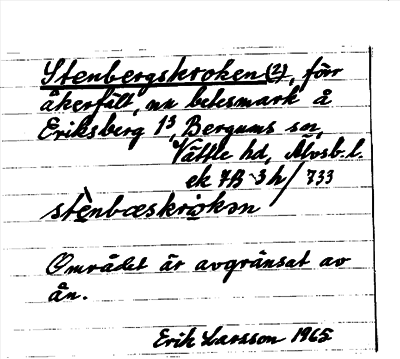 Stenbergskroken (2), förr
åkerfält, nu betesmark å
Eriksberg 1³, Bergums sn,
Vättle hd, Älvsb. l.
ek 7B 3h/733
stènbæskrò̤kən
Området är avgränsat av
ån.
Erik Larsson 1965